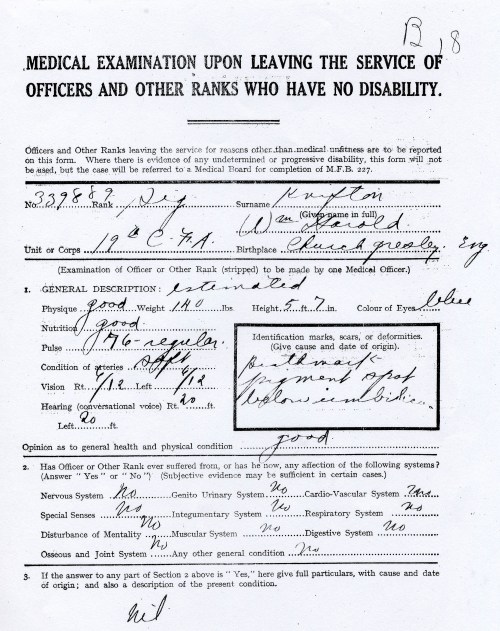 B 18
MEDICAL EXAMINATION UPON LEAVING THE SERVICE OF
OFFICERS AND OTHER RANKS WHO HAVE NO DISABILITY.
Officers and Other Ranks leaving the service for reasons other than medical unfitness are to be reported
on this form. Where there is evidence of any undetermined or progressive disability, this form will not
be used, but the case will be referred to a Medical Board for completion of M.F.B. 227.
No. 339889 Rank Sig Surname Knifton
(Given name in full) Wm Harold
Unit or Corps 19th C.F.A. Birthplace Church Gresley Eng
(Examination of Officer or Other Rank (stripped) to be made by one Medical Officer.)
1. GENERAL DESCRIPTION: estimated
Physique good Weight 140 lbs. Height 5 ft. 7 in. Colour of Eyes blue
Nutrition good
Pulse 76-regular.
Condition of arteries soft
Vision Rt. 6/12 Left 6/12
Hearing (conversational voice) Rt. 20 ft.
Left 20 ft.
Identification marks, scars, or deformities.
(Give cause and date of origin).
Birthmark
pigment spot
below umbilicus
Opinion as to general health and physical condition good
2. Has Officer or Other Rank ever suffered from, or has he now, any affection of the following systems?
(Answer "Yes" or "No") (Subjective evidence may be sufficient in certain cases.)
Nervous System No Genito Urinary System No Cardio-Vascular System No
Special Senses No Integumentary System No Respiratory System No
Disturbance of Mentality No Muscular System No Digestive System No
Osseous and Joint System No Any other general condition No
3. If the answer to any part of Section 2 above is "Yes," here give full particulars, with cause and date
of origin; and also a description of the present condition.
Nil